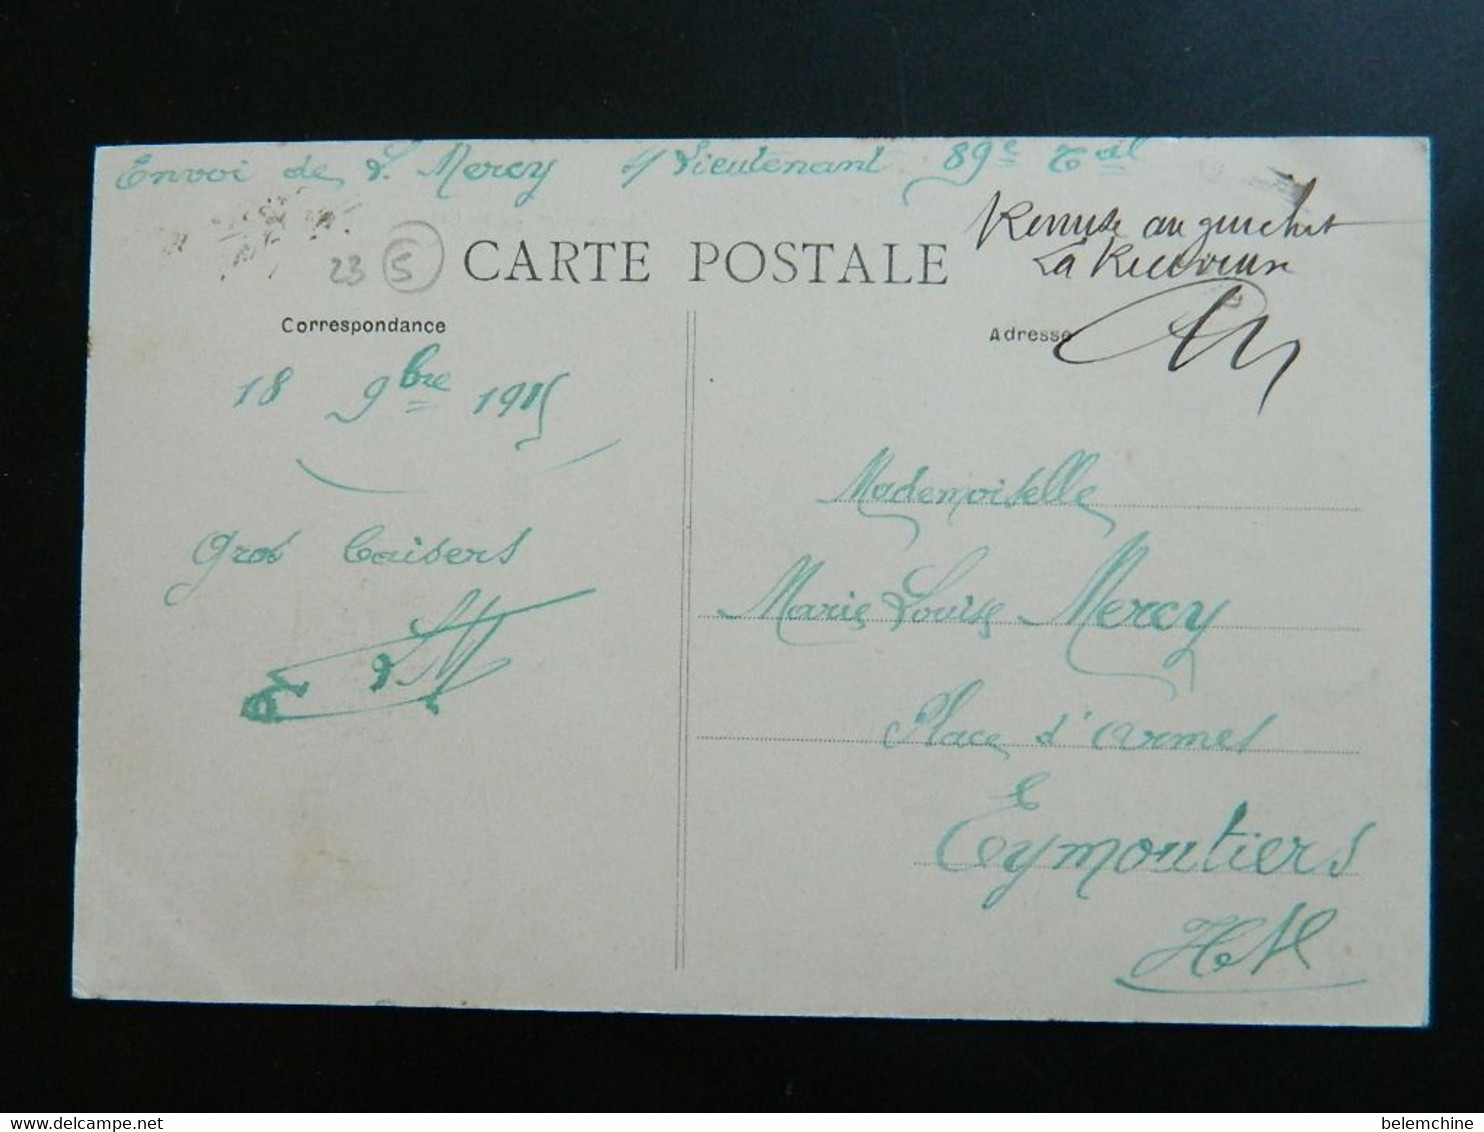 Envoi de L. Mercy s/Lieutenant 89e Tal
Remise au guichet
La Receveuse
23 5
CARTE POSTALE
Correspondance
Adresse
18 9bre 1915
Mademoiselle
Gros baisers
Marie Louise Mercy
Place d'Armes
Eymoutiers
HV
delcampe.net
belemchine